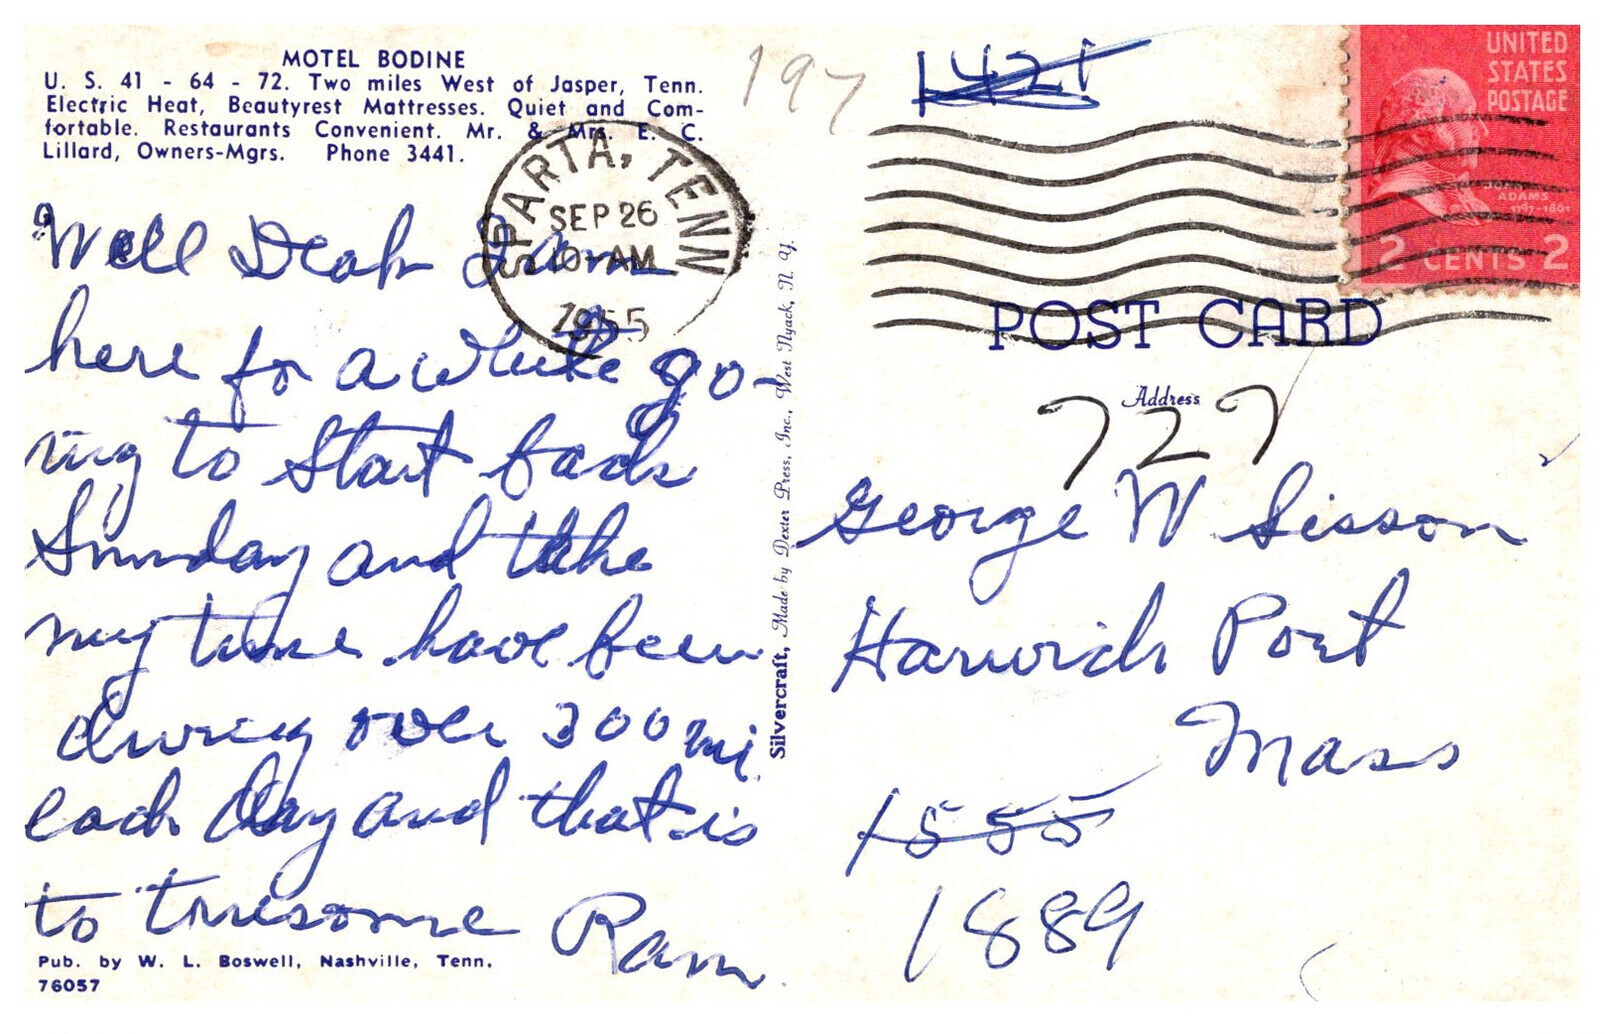 MOTEL BODINE
U. S. 41 - 64 - 72. Two miles West of Jasper, Tenn.
Electric Heat, Beautyrest Mattresses. Quiet and Com-
fortable. Restaurants Convenient. Mr. & Mrs. E. C.
Lillard, Owners-Mgrs. Phone 3441.
SPARTA, TENN
SEP 26
10-AM
1955
Well Deah I am
here for a while go-
ing to start back
Sunday and take
my time have been
driving over 300 mi
each day and that is
to tiresome Ram
Pub. by W. L. Boswell, Nashville, Tenn.
76057
Silvercraft, Made by Dexter Press, Inc., West Nyack, N. Y.
197
1421
UNITED
STATES
POSTAGE
JOHN
ADAMS
1797-1801
2 CENTS 2
POST CARD
Address
727
George W Sisson
Harwich Port
Mass
1555
1889